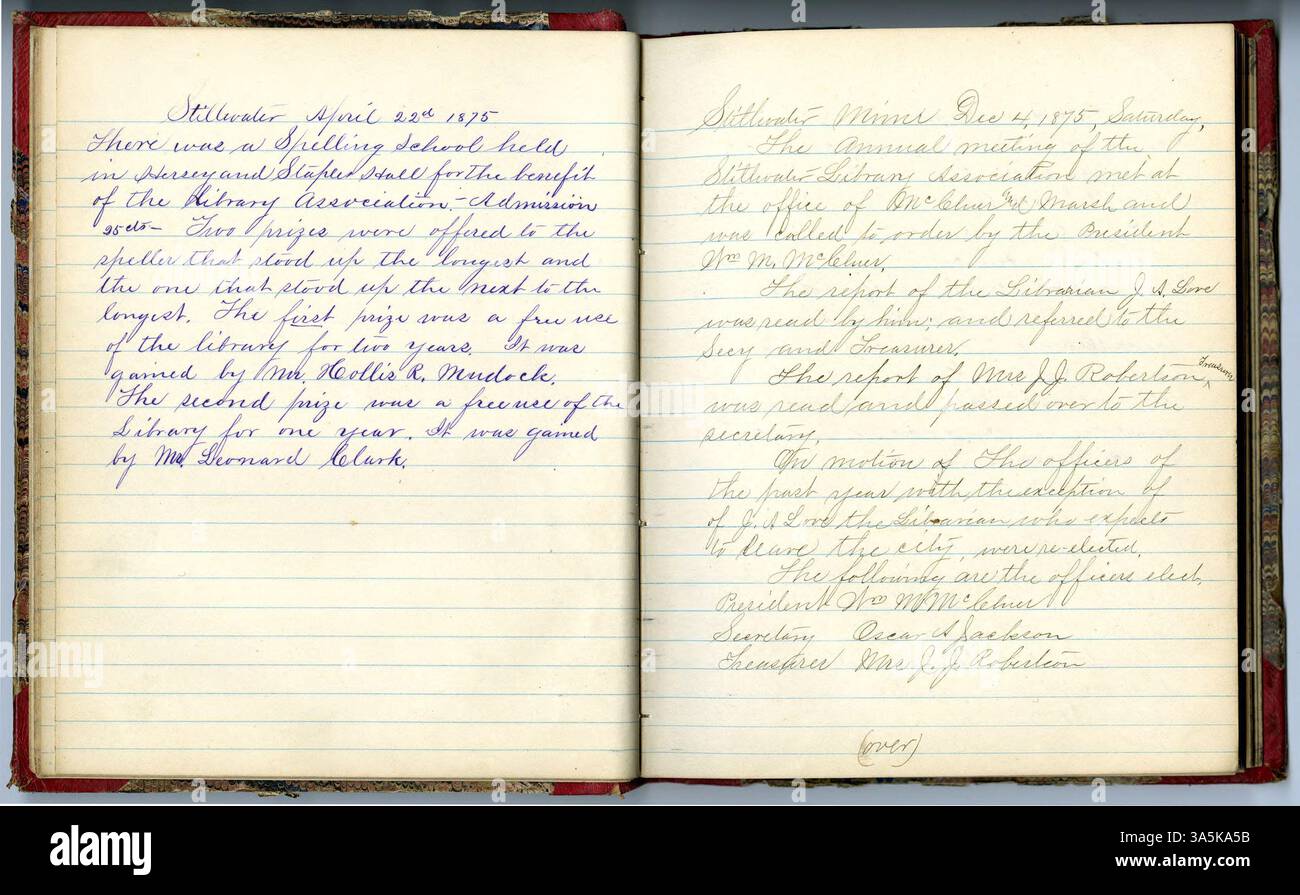 Stillwater April 22d 1875
There was a Spelling School held
in Hersey and Staples Hall for the benefit
of the Library Association,- Admission
25cts- Two prizes were offered to the
speller that stood up the longest and
the one that stood up the next to the
longest. The first prize was a free use
of the library for two years. It was
gained by Mr. Hollis R. Mudock.
The second prize was a free use of the
Library for one year. It was gained
by Mr. Leonard Clark.
Stillwater Minn Dec 4, 1875, Saturday,
The Annual meeting of the
Stillwater Library Association met at
the office of McCluer and Marsh and
was called to order by the President
Wm M. McCluer.
The report of the Librarian J. A Love
was read by him; and referred to the
Secy and Treasurer.
The report of Mrs J. J. Robertson Treasurer
was read and passed over to the
secretary.
On motion of The officers of
the past year with the exception of
of J. A Love the Librarian who expects
to leave the city, were re-elected.
The following are the officers elect.
President Wm M McCluer
Secretary Oscar A Jackson
Treasurer Mrs J. J. Robertson
(over)
alamy
Image ID: 3A5KA5B
www.alamy.com